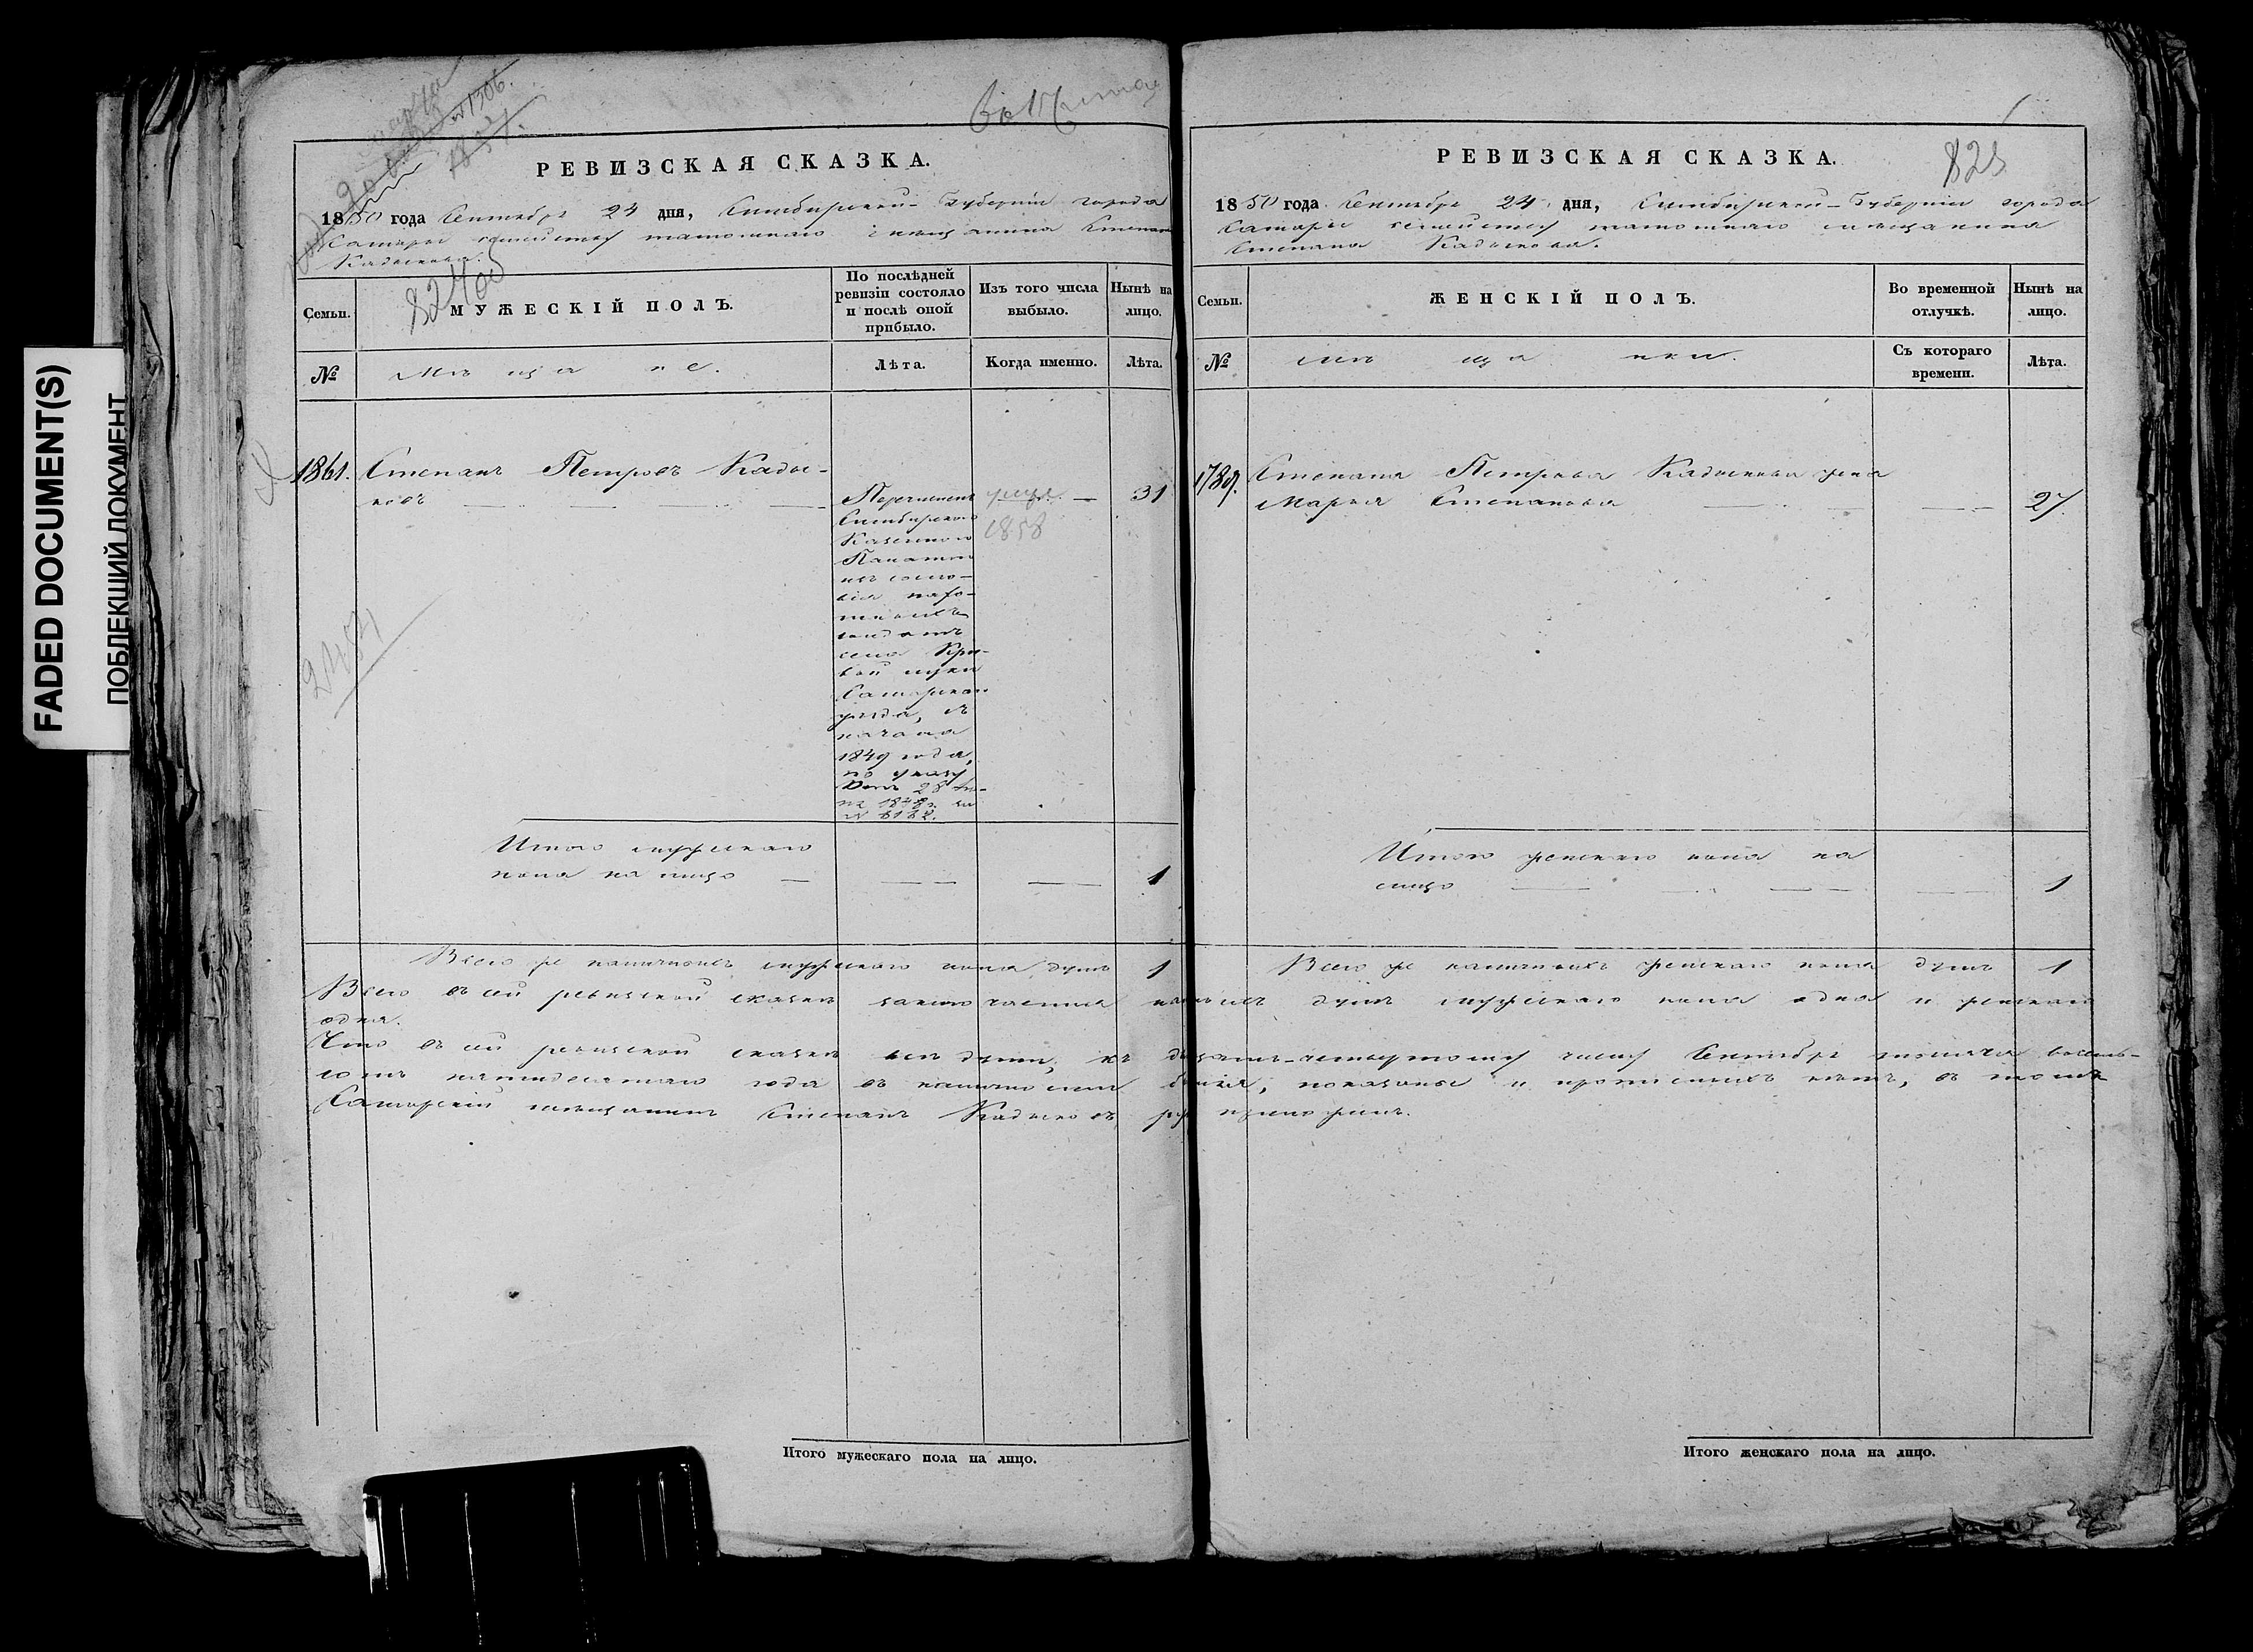 FADED DOCUMENT(S)
ПОБЛЕКЩИЙ ДОКУМЕНТ
№ 1306.
РЕВИЗСКАЯ СКАЗКА.
1850 года Сентября 24 дня, Симбирской Губернiи города
Самары семейству тамошняго мещанина Степана
Кадыкова.
824 об
Семьи.
МУЖЕСКIЙ ПОЛЪ.
По послѣдней
ревизiи состояло
и послѣ оной
прибыло.
Изъ того числа
выбыло.
Нынѣ на
лицо.
№
Мѣщане.
Лѣта.
Когда именно.
Лѣта.
1861.
Степанъ Петровъ Кады-
ковъ
Перечисленъ
Симбирскою
Казенною
Палатою
изъ сосло-
вiя
солдатъ
села Кри-
вой луки
Самарскаго
уѣзда, съ
начала
1849 года,
по указу
1858
31
2484
Итого мужескаго
пола на лицо
1
Всего же наличныхъ мужескаго пола душъ 1
РЕВИЗСКАЯ СКАЗКА.
825
1850 года Сентября 24 дня, Симбирской Губернiи города
Самары семейству тамошняго мѣщанина
Степана Кадыкова.
Семьи.
ЖЕНСКIЙ ПОЛЪ.
Во временной
отлучкѣ.
Нынѣ на
лицо.
№
Мѣщанки.
Съ котораго
времени.
Лѣта.
1789.
Степана Петрова Кадыкова жена
Марья Степанова
27
Итого женскаго пола на
лицо
1
Всего же наличныхъ женскаго пола душъ 1
Всего въ сей ревизской сказкѣ заключается наличныхъ душъ мужескаго пола одна и женскаго
одна.
Что въ сей ревизской сказкѣ всѣ души, къ двадцать четвертому числу Сентября тысяча восемь-
сотъ пятидесятаго года въ наличности бывшiя, показаны и прописныхъ нѣтъ, въ томъ
Самарскiй мѣщанинъ Степанъ Кадыковъ руку приложилъ.
Итого мужескаго пола на лицо.
Итого женскаго пола на лицо.